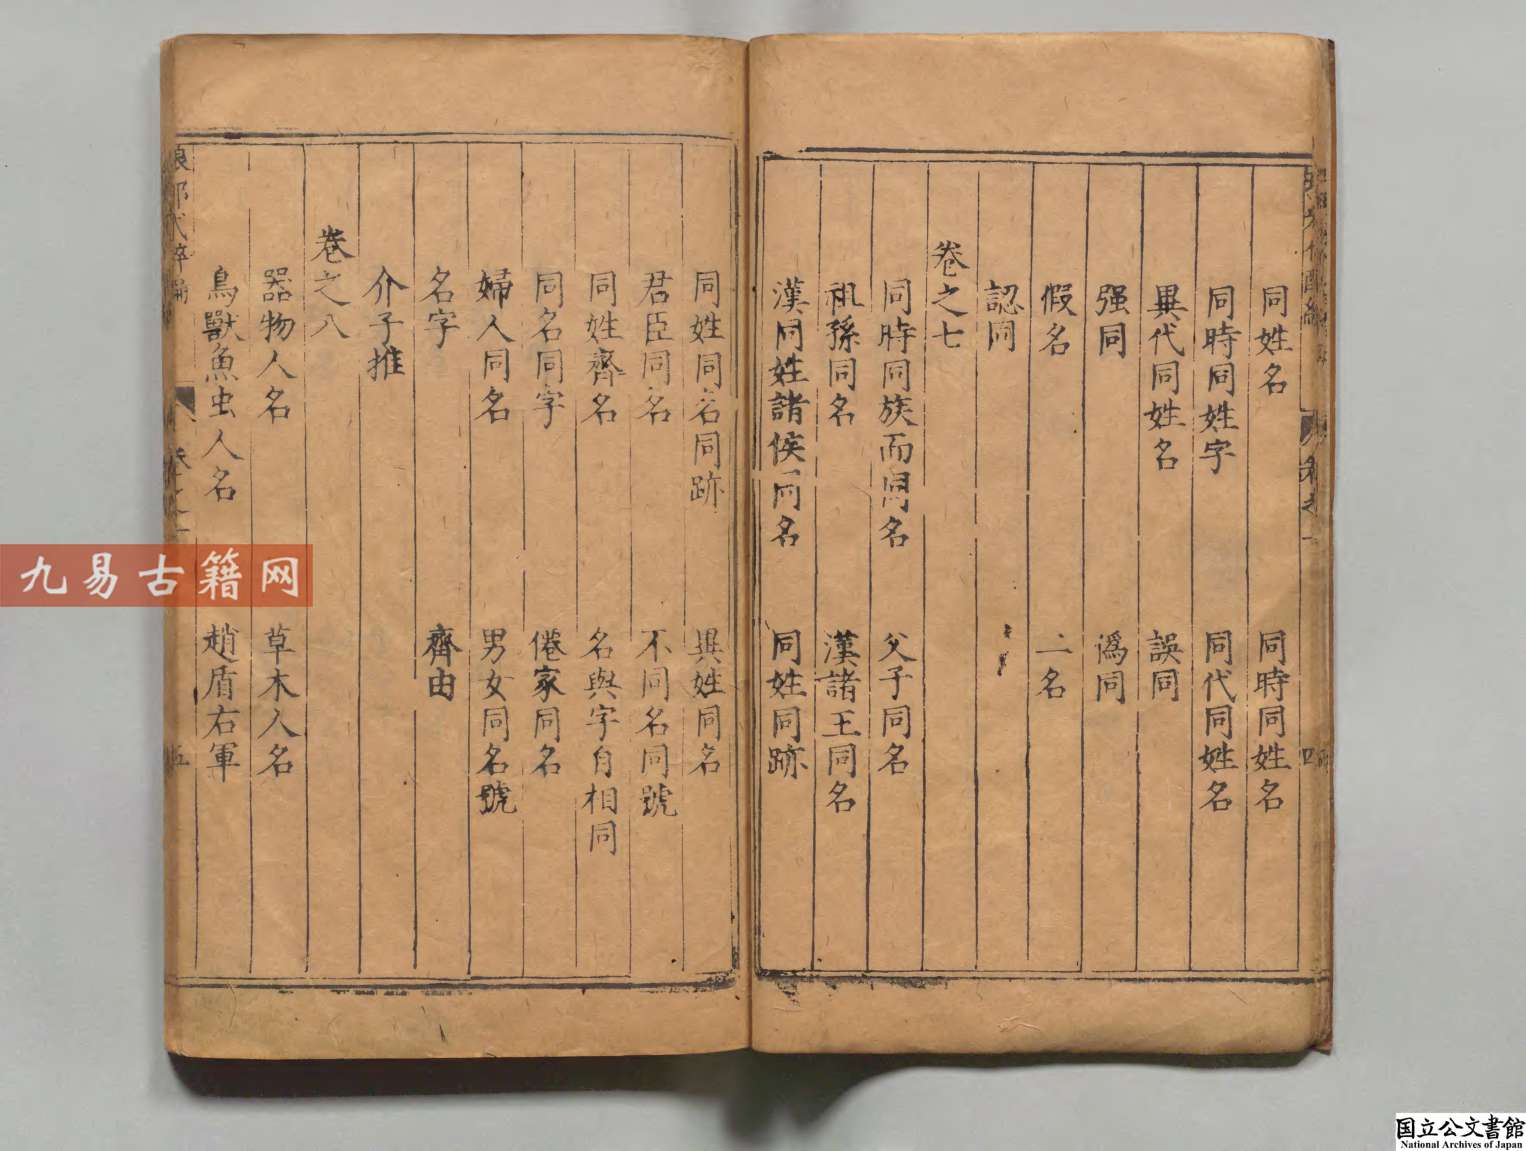 同姓名　同時同姓名
同時同姓字　同代同姓名
異代同姓名　誤同
强同　譌同
假名　二名
認同
卷之七
同時同族而同名　父子同名
祖孫同名　漢諸王同名
漢同姓諸侯同名　同姓同跡
同姓同名同跡　異姓同名
君臣同名　不同名同號
同姓齊名　名與字自相同
同名同字　僊家同名
婦人同名　男女同名號
名字　齊由
介子推
卷之八
器物人名　草木人名
鳥獸魚虫人名　趙盾右軍
琅邪代醉編　卷之一　五
卷之一　四
九易古籍网
国立公文書館
National Archives of Japan